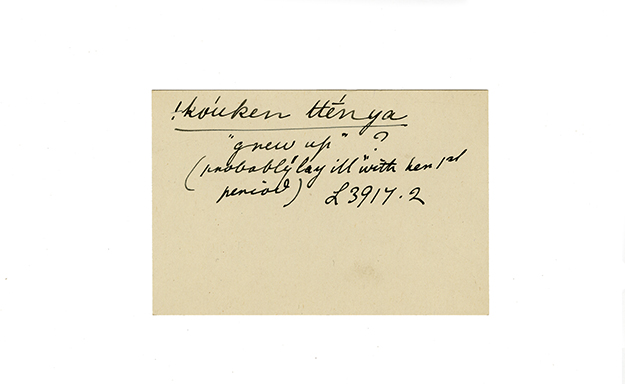 !kóuken ttén ya
"grew up" ?
(probably "lay ill" with her 1st
period) L 3917.2